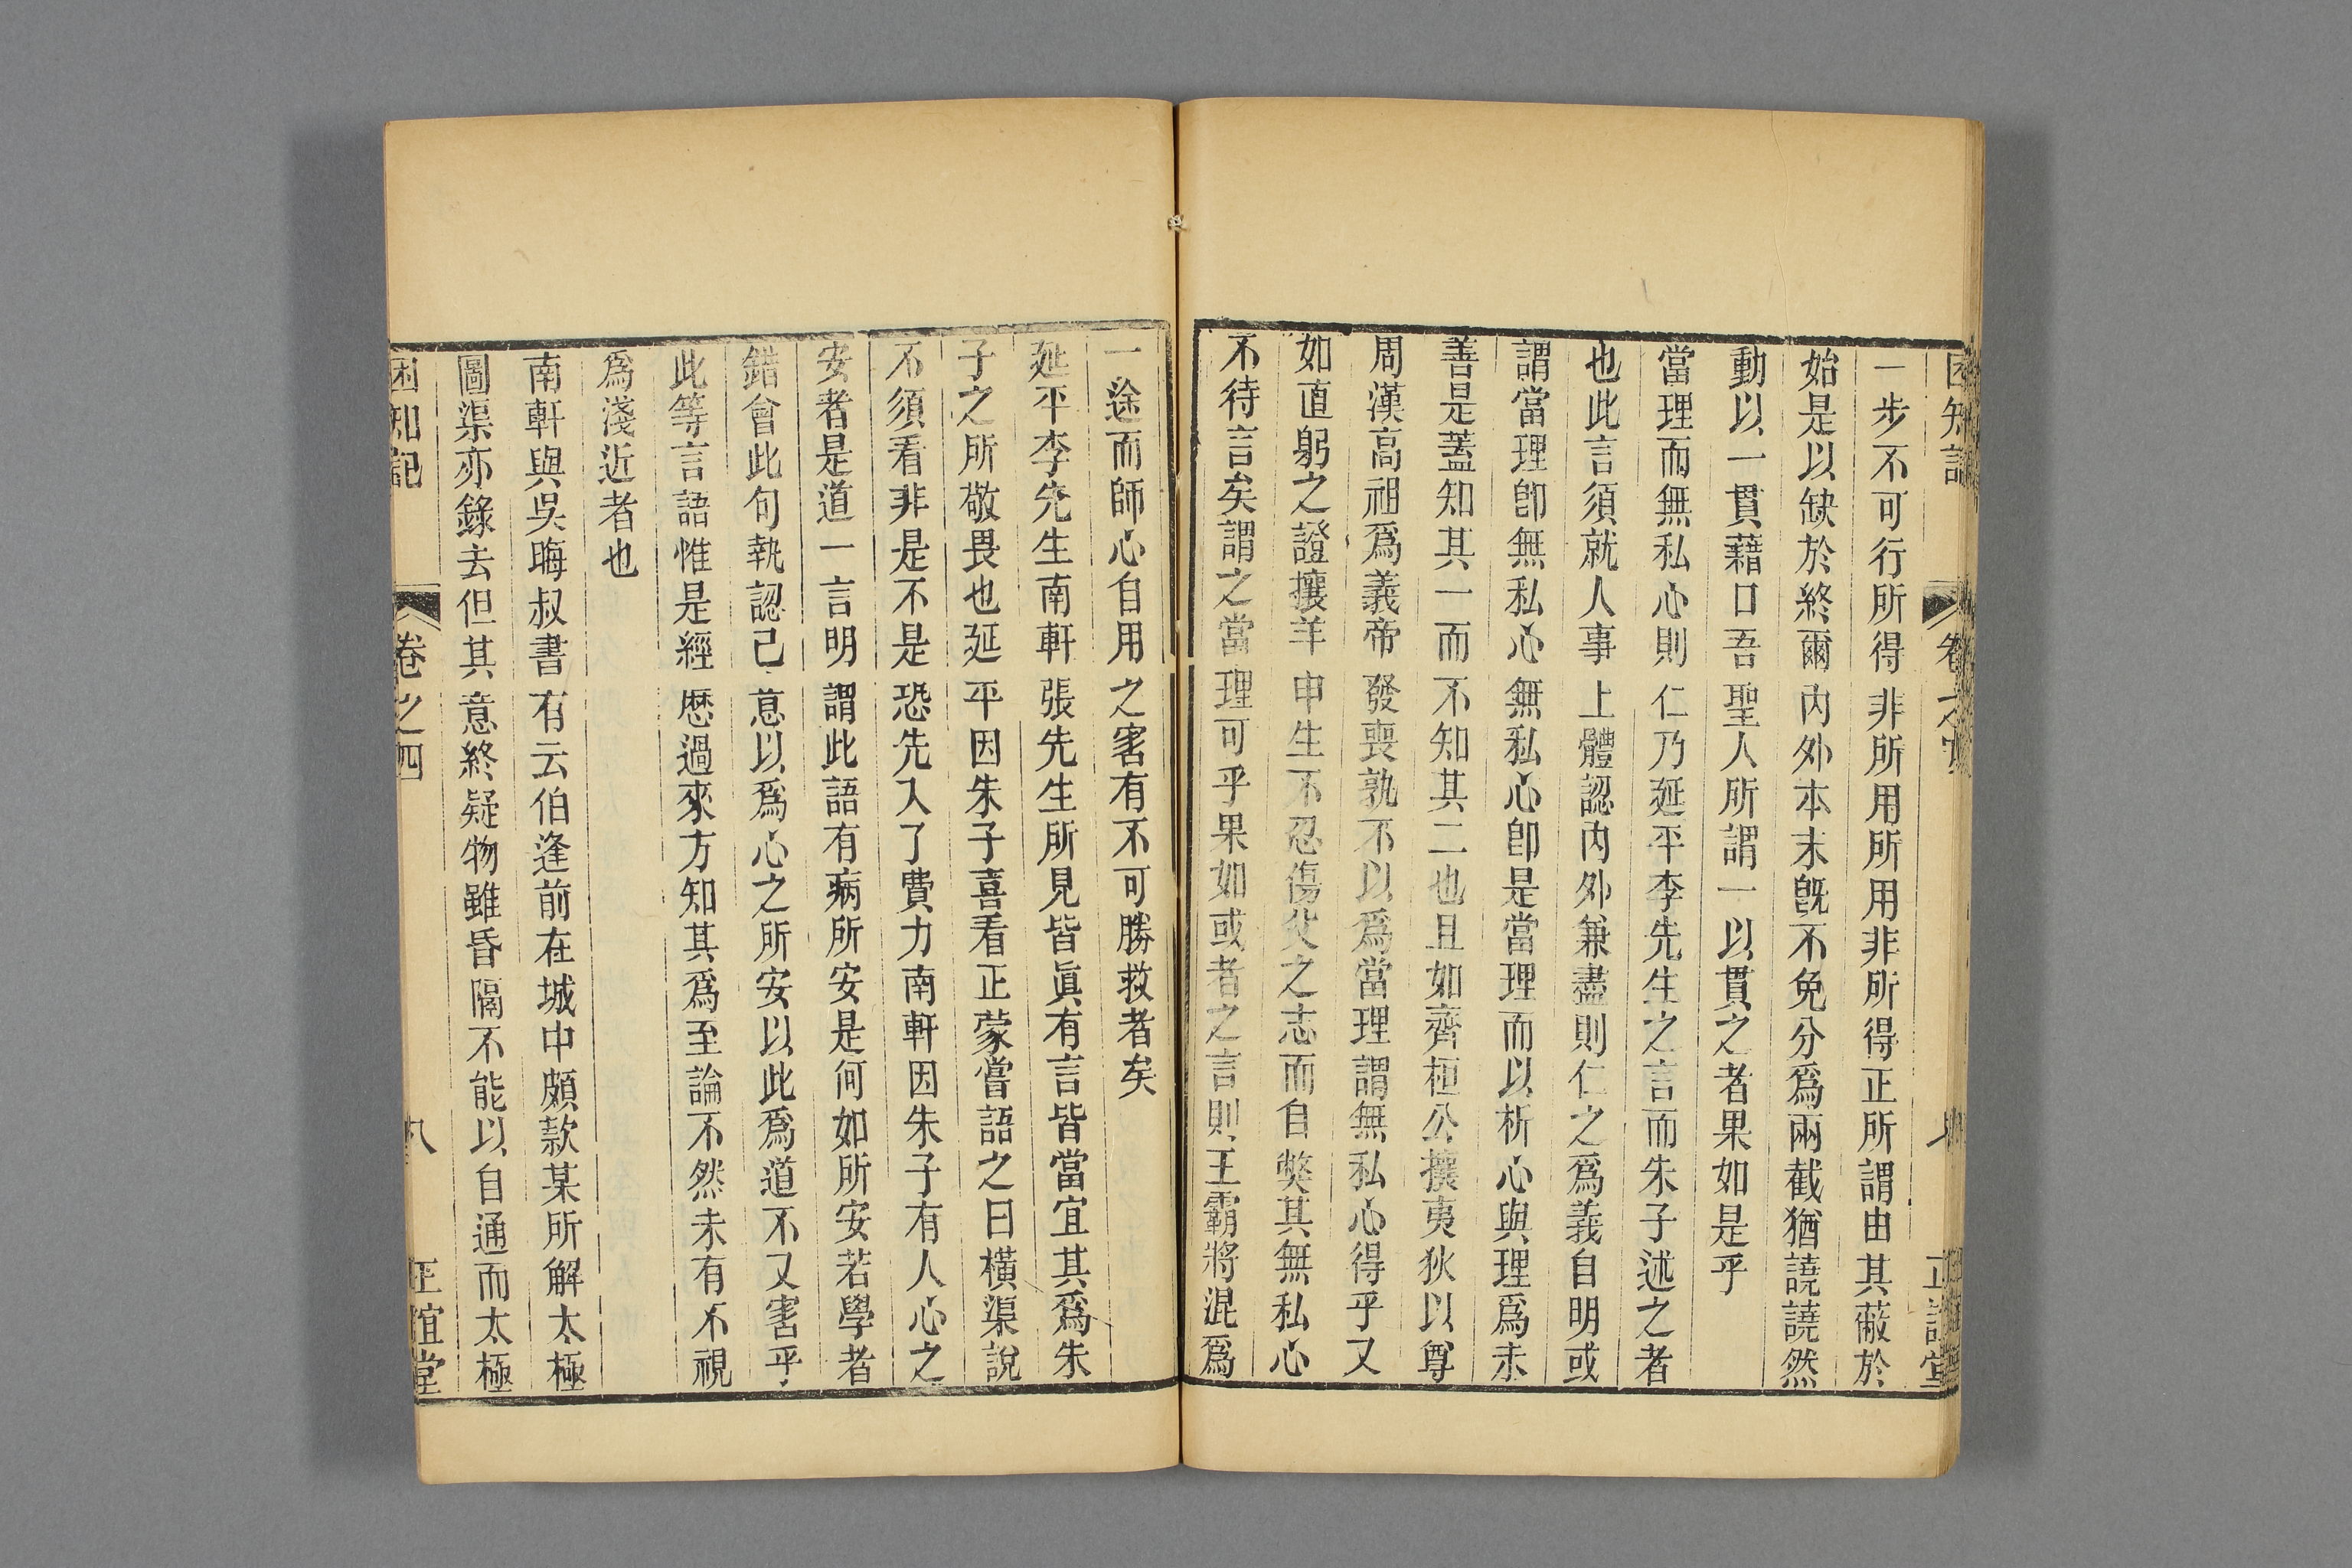 一步不可行所得非所用所用非所得正所謂由其蔽於
始是以缺於終爾内外本末旣不免分爲兩截猶譊譊然
動以一貫藉口吾聖人所謂一以貫之者果如是乎
當理而無私心則仁乃延平李先生之言而朱子述之者
也此言須就人事上體認内外兼盡則仁之爲義自明或
謂當理卽無私心無私心卽是當理而以析心與理爲未
善是蓋知其一而不知其二也且如齊桓公攘夷狄以尊
周漢高祖爲義帝發喪孰不以爲當理謂無私心得乎又
如直躬之證攘羊申生不忍傷父之志而自斃其無私心
不待言矣謂之當理可乎果如或者之言則王霸將混爲
一途而師心自用之害有不可勝救者矣
延平李先生南軒張先生所見皆眞有言皆當宜其爲朱
子之所敬畏也延平因朱子喜看正蒙嘗語之曰橫渠說
不須看非是不是恐先入了費力南軒因朱子有人心之
安者是道一言明謂此語有病所安是何如所安若學者
錯會此句執認己意以爲心之所安以此爲道不又害乎
此等言語惟是經歷過來方知其爲至論不然未有不視
爲淺近者也
南軒與吳晦叔書有云伯逢前在城中頗款某所解太極
圖渠亦錄去但其意終疑物雖昏隔不能以自通而太極
困知記 卷之四 八 正誼堂